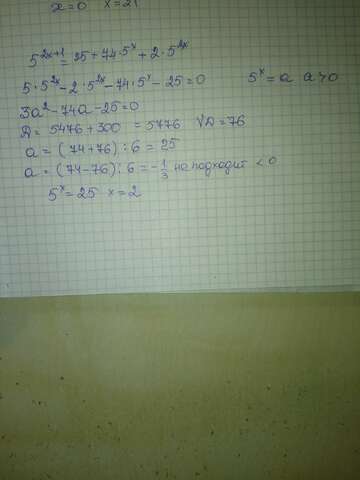 x=0 x=21
5^{2x+1}=25+74·5^x+2·5^{2x}
5·5^{2x}-2·5^{2x}-74·5^x-25=0 5^x=a a>0
3a²-74a-25=0
D=5476+300=5776 √D=76
a=(74+76):6=25
a=(74-76):6=-1/3 не подходит <0
5^x=25 x=2